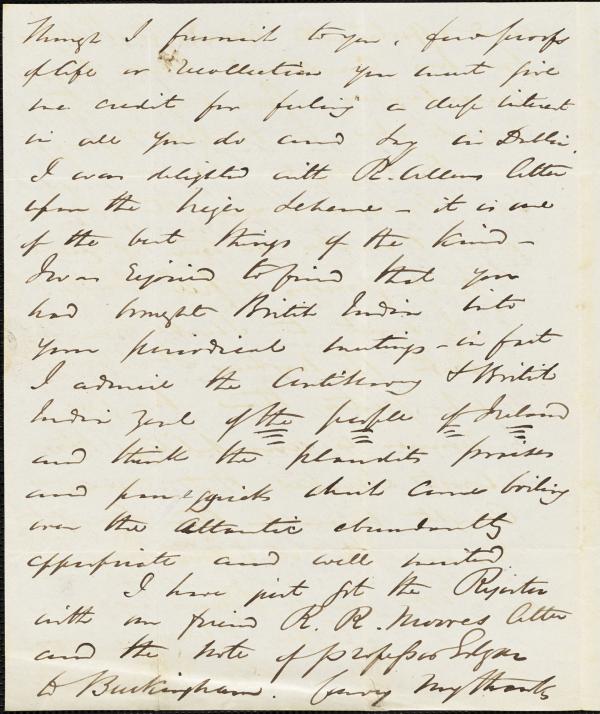 Though I furnish to you, few proofs
of life or recollection you must give
me credit for feeling a deep interest
in all you do and say in Dublin.
I was delighted with R. Allens letter
upon the Niger Scheme – it is one
of the best things of the kind –
I was rejoiced to find that you
had brought British India into
your periodical meetings – in fact
I admire the Antislavery & British
India zeal of the people of Ireland
and think the plaudits praises
and panegyricks which come boiling
over the Atlantic abundantly
appropriate and well merited.
I have just got the Register
with our friend R. R. Moores letter
and the note of Professor Edgar
to Buckingham. Convey my thanks